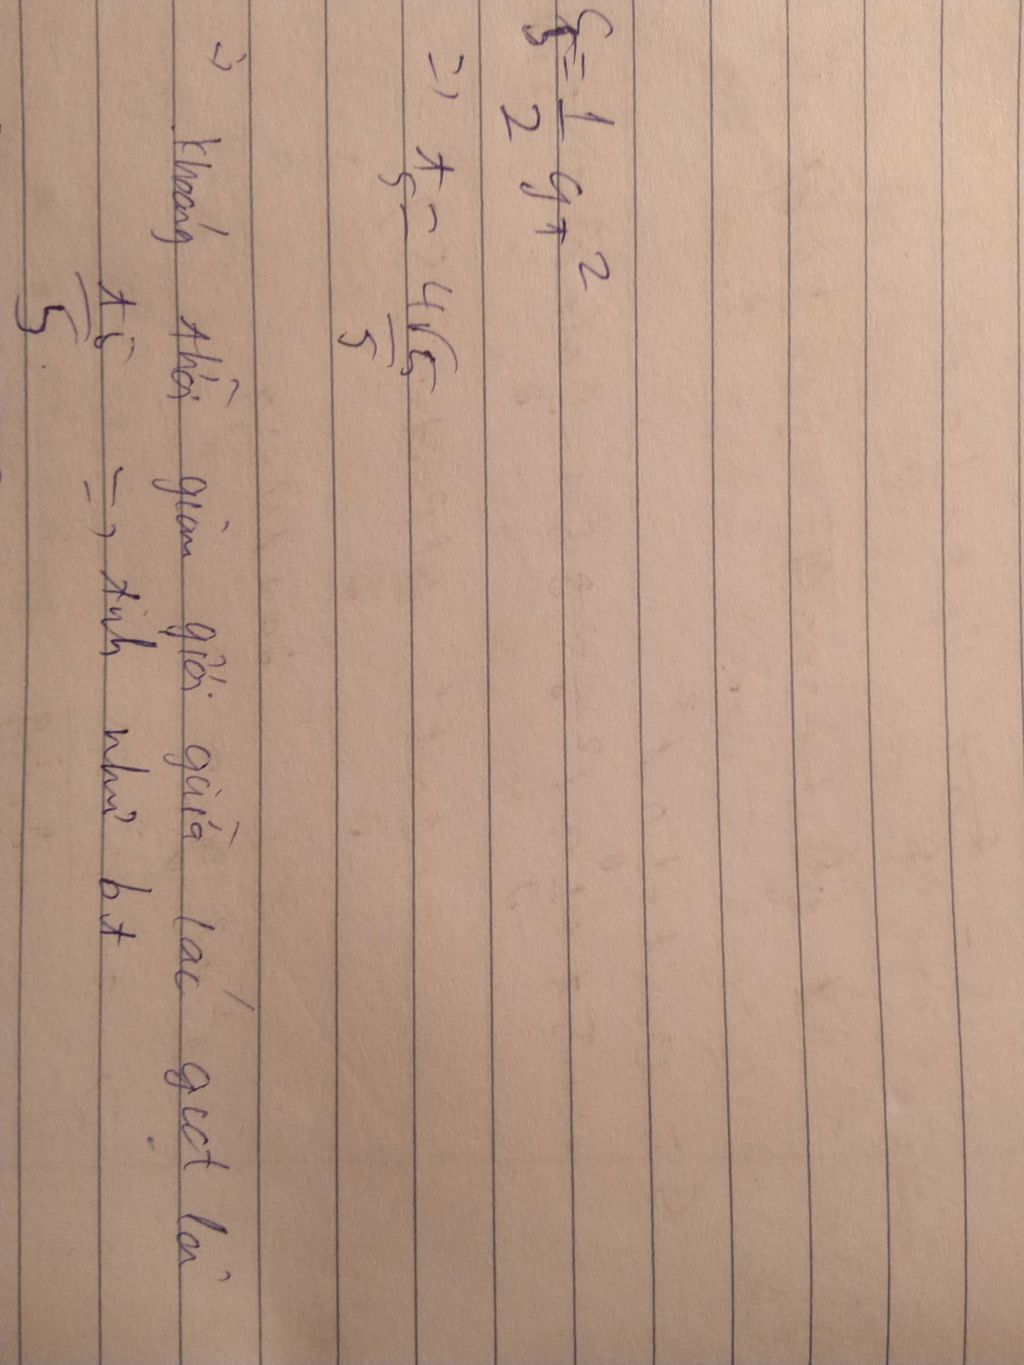 S₅ = 1/2 gt²
=> t₅ = 4√5/5
=> khoảng thời gian giới giữa các giọt là
t₅/5 => tính như bt